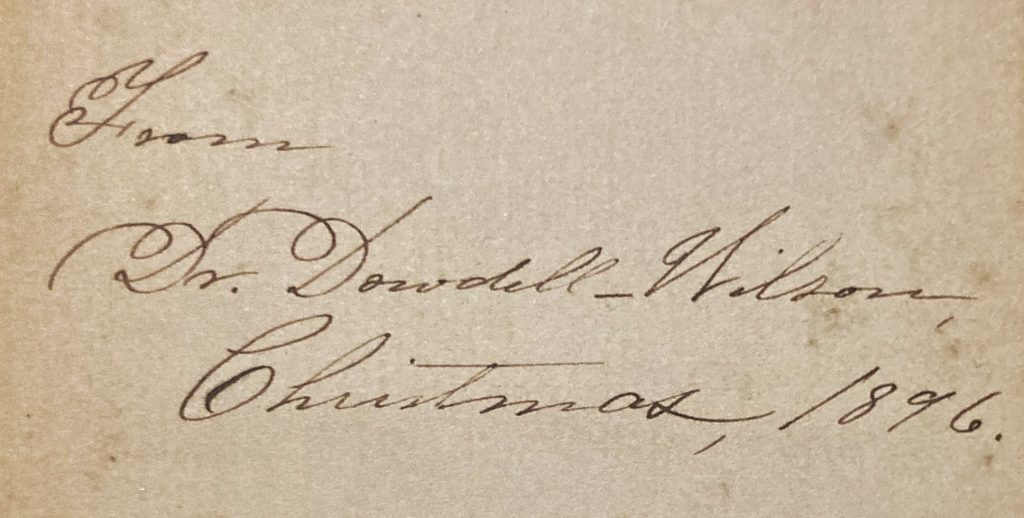 From
Dr. Dowdell-Wilson,
Christmas, 1896.